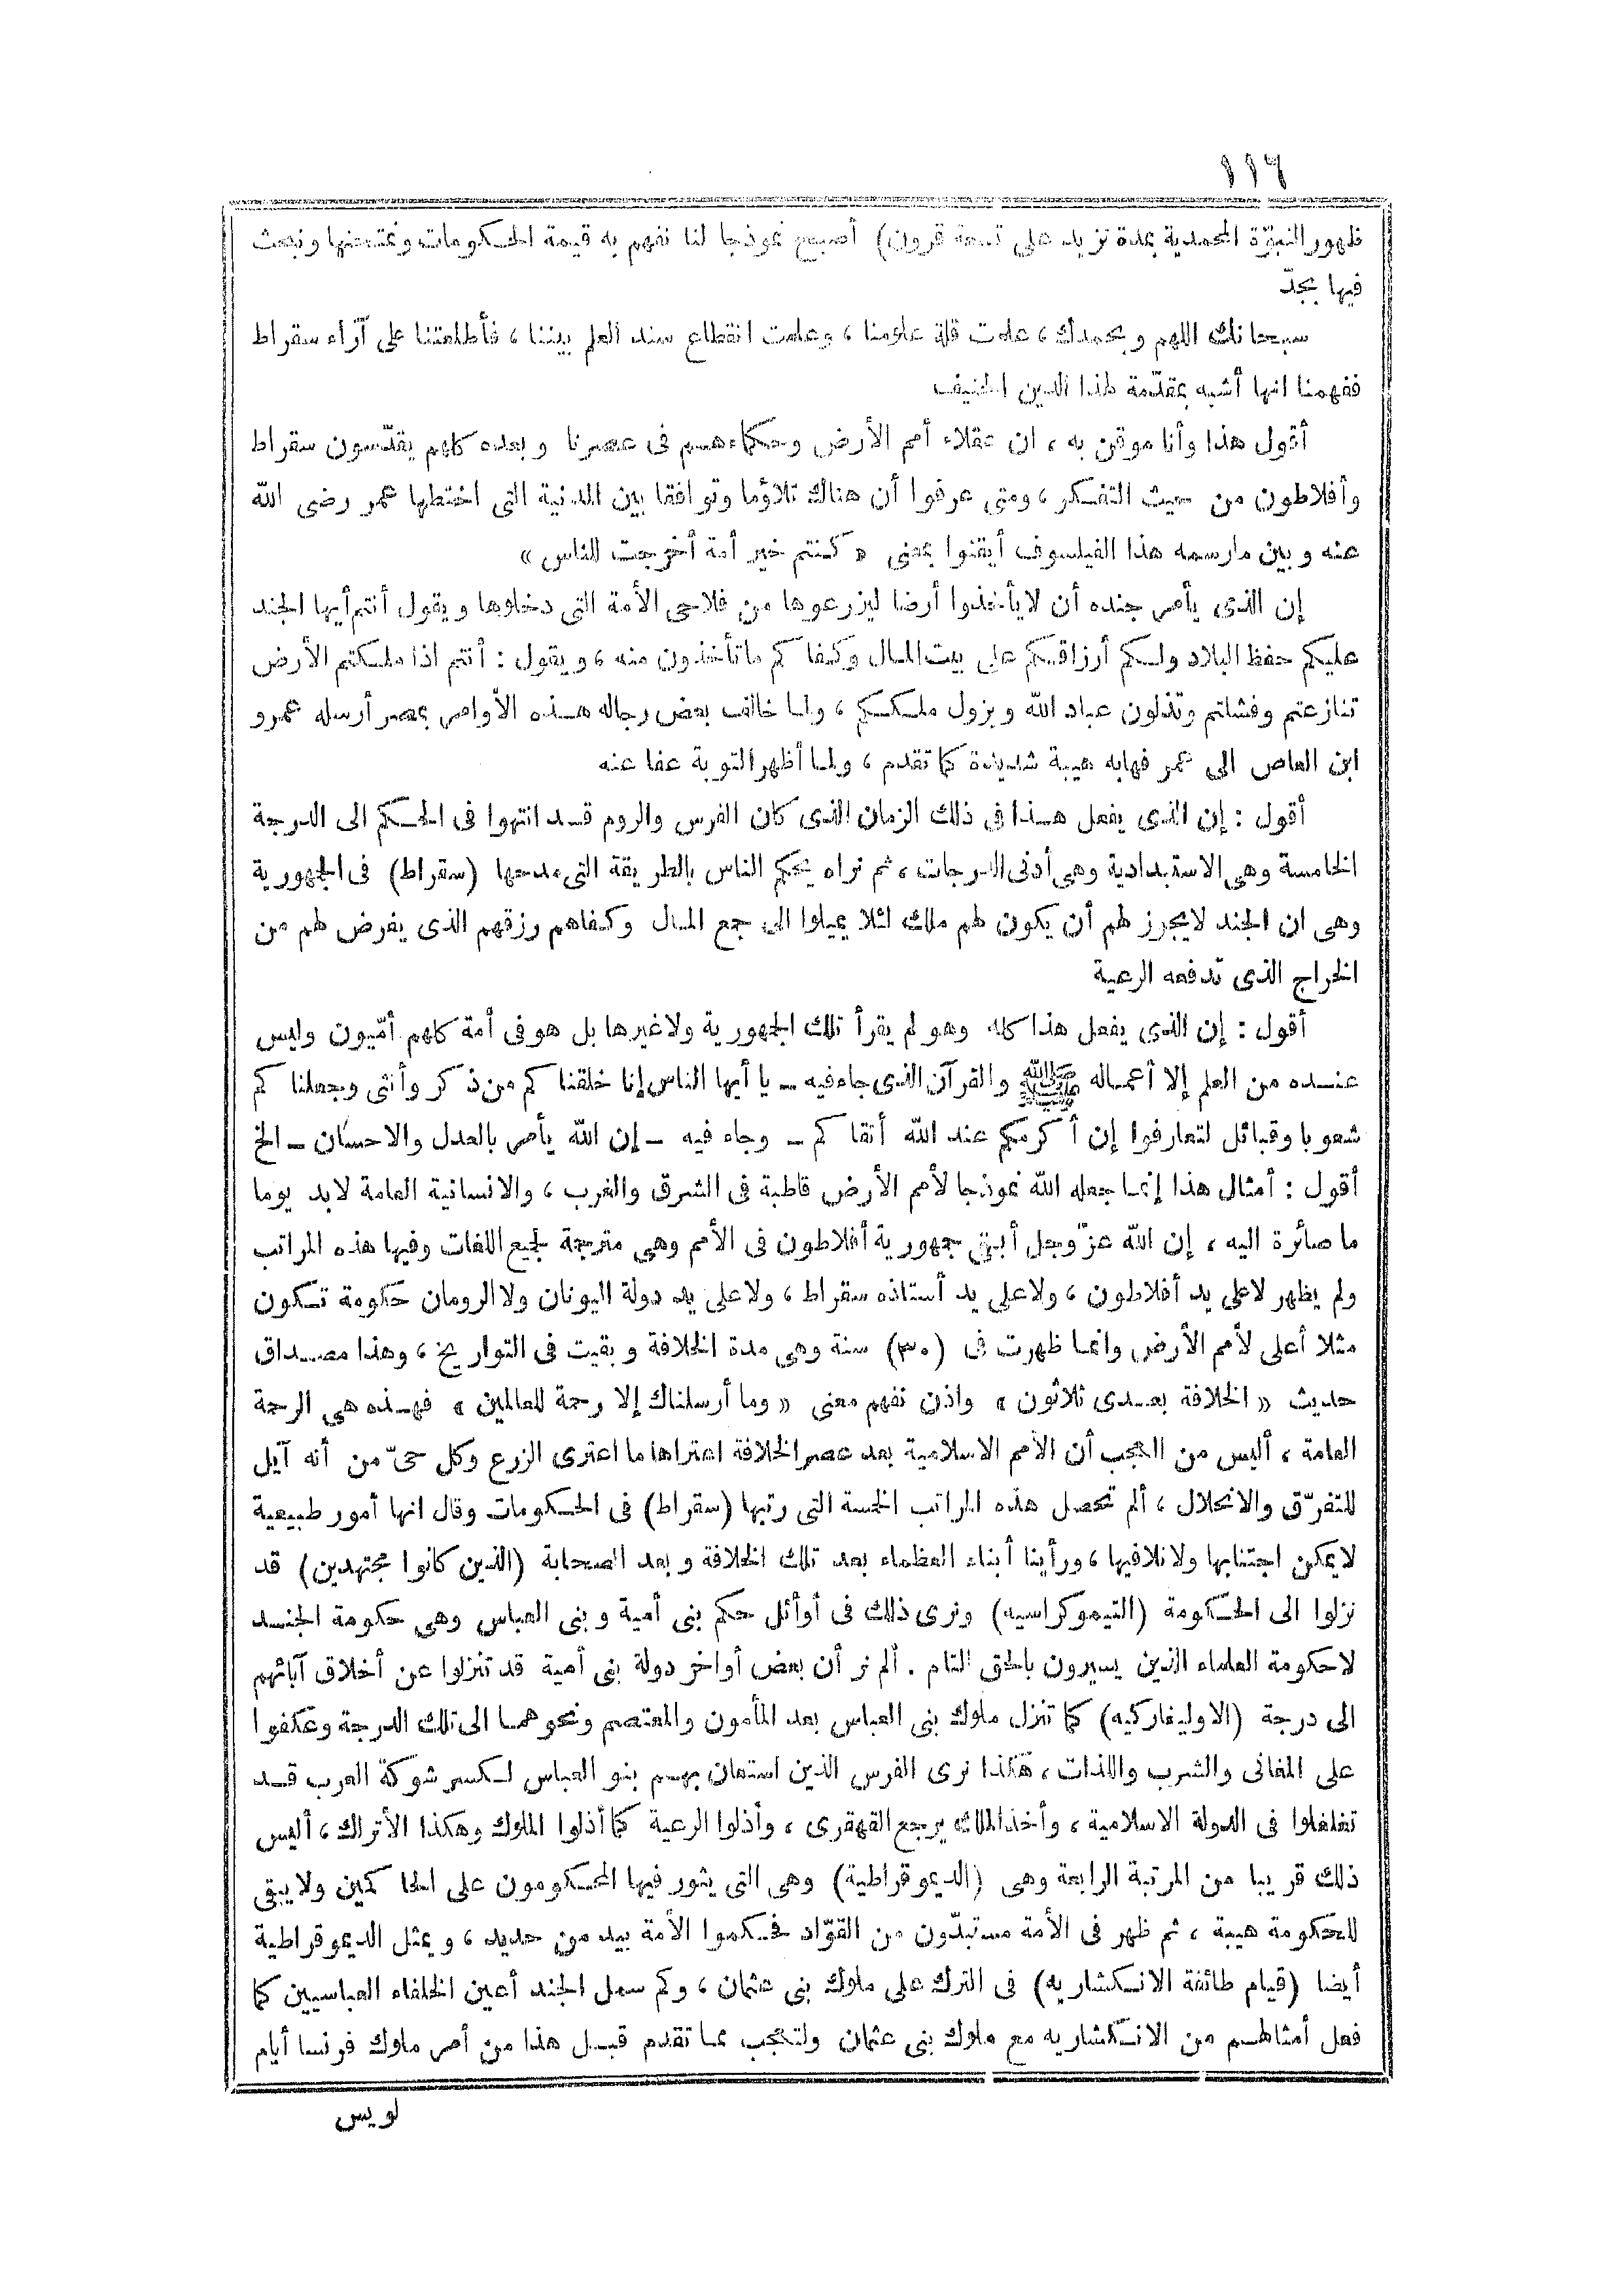 ١١٦
ظهور النبوّة المحمدية بمدة تزيد على تسعة قرون) أصبح نموذجا لنا نفهم به قيمة الحكومات ونمتحنها ونبحث
فيها بجدّ
سبحانك اللهم وبحمدك ، علمت قلة علومنا ، وعلمت انقطاع سند العلم بيننا ، فأطلعتنا على آراء سقراط
ففهمنا انها أشبه بمقدّمة لهذا الدين الحنيف
أقول هذا وأنا موقن به ، ان عقلاء أمم الأرض وحكماءهم فى عصرنا وبعده كلهم يقدّسون سقراط
وأفلاطون من حيث التفكر ، ومتى عرفوا أن هناك تلاؤما وتوافقا بين المدنية التى اختطها عمر رضى الله
عنه وبين مارسمه هذا الفيلسوف أيقنوا بمعنى « كنتم خير أمة أخرجت للناس »
إن الذى يأمر جنده أن لايأخذوا أرضا ليزرعوها من فلاحى الأمة التى دخلوها ويقول أنتم أيها الجند
عليكم حفظ البلاد ولكم أرزاقكم على بيت المال وكفاكم ماتأخذون منه ، ويقول : أنتم اذا ملكتم الأرض
تنازعتم وفشلتم وتذلون عباد الله ويزول ملككم ، ولما خالف بعض رجاله هذه الأوامر بمصر أرسله عمرو
ابن العاص الى عمر فهابه هيبة شديدة كما تقدم ، ولما أظهر التوبة عفا عنه
أقول : إن الذى يفعل هذا فى ذلك الزمان الذى كان الفرس والروم قد انتهوا فى الحكم الى الدرجة
الخامسة وهى الاستبدادية وهى أدنى الدرجات ، ثم نراه يحكم الناس بالطريقة التى مدحها (سقراط) فى الجمهورية
وهى ان الجند لايجوز لهم أن يكون لهم ملك لئلا يميلوا الى جمع المال وكفاهم رزقهم الذى يفرض لهم من
الخراج الذى تدفعه الرعية
أقول : إن الذى يفعل هذا كله وهو لم يقرأ تلك الجمهورية ولاغيرها بل هو فى أمة كلهم أمّيون وليس
عنده من العلم إلا أعماله ﷺ والقرآن الذى جاء فيه ـ يا أيها الناس إنا خلقناكم من ذكر وأنثى وجعلناكم
شعوبا وقبائل لتعارفوا إن أكرمكم عند الله أتقاكم ـ وجاء فيه ـ إن الله يأمر بالعدل والاحسان ـ الخ
أقول : أمثال هذا إنما جعله الله نموذجا لأمم الأرض قاطبة فى الشرق والغرب ، والانسانية العامة لابد يوما
ما صائرة اليه ، إن الله عزّ وجل أبقى جمهورية أفلاطون فى الأمم وهى مترجمة لجميع اللغات وفيها هذه المراتب
ولم يظهر لاعلى يد أفلاطون ، ولاعلى يد أستاذه سقراط ، ولاعلى يد دولة اليونان ولا الرومان حكومة تكون
مثلا أعلى لأمم الأرض وانما ظهرت فى (٣٠) سنة وهى مدة الخلافة وبقيت فى التواريخ ، وهذا مصداق
حديث « الخلافة بعدى ثلاثون » واذن نفهم معنى « وما أرسلناك إلا رحمة للعالمين » فهذه هى الرحمة
العامة ، أليس من العجب أن الأمم الاسلامية بعد عصر الخلافة اعتراها ما اعترى الزرع وكل حىّ من أنه آيل
للتفرّق والانحلال ، ألم تحصل هذه المراتب الخمسة التى رتبها (سقراط) فى الحكومات وقال انها أمور طبيعية
لايمكن اجتنابها ولاتلافيها ، ورأينا أبناء العظماء بعد تلك الخلافة وبعد الصحابة (الذين كانوا مجتهدين) قد
نزلوا الى الحكومة (التيموكراسيه) ونرى ذلك فى أوائل حكم بنى أمية وبنى العباس وهى حكومة الجند
لاحكومة العلماء الذين يسيرون بالحق التام . ألم تر أن بعض أواخر دولة بنى أمية قد تنزلوا عن أخلاق آبائهم
الى درجة (الاوليغاركيه) كما تنزل ملوك بنى العباس بعد المأمون والمعتصم ونحوهما الى تلك الدرجة وعكفوا
على المغانى والشرب واللذات ، هكذا نرى الفرس الذين استعان بهم بنو العباس لكسر شوكة العرب قد
تغلغلوا فى الدولة الاسلامية ، وأخذ الملك يرجع القهقرى ، وأذلوا الرعية كما أذلوا الملوك وهكذا الأتراك ، أليس
ذلك قريبا من المرتبة الرابعة وهى (الديموقراطية) وهى التى يثور فيها المحكومون على الحاكمين ولايبقى
للحكومة هيبة ، ثم ظهر فى الأمة مستبدّون من القوّاد فحكموا الأمة بيد من حديد ، ويمثل الديموقراطية
أيضا (قيام طائفة الانكشاريه) فى الترك على ملوك بنى عثمان ، وكم سمل الجند أعين الخلفاء العباسيين كما
فعل أمثالهم من الانكشاريه مع ملوك بنى عثمان ولتعجب مما تقدم قبل هذا من أمر ملوك فرنسا أيام
لويس